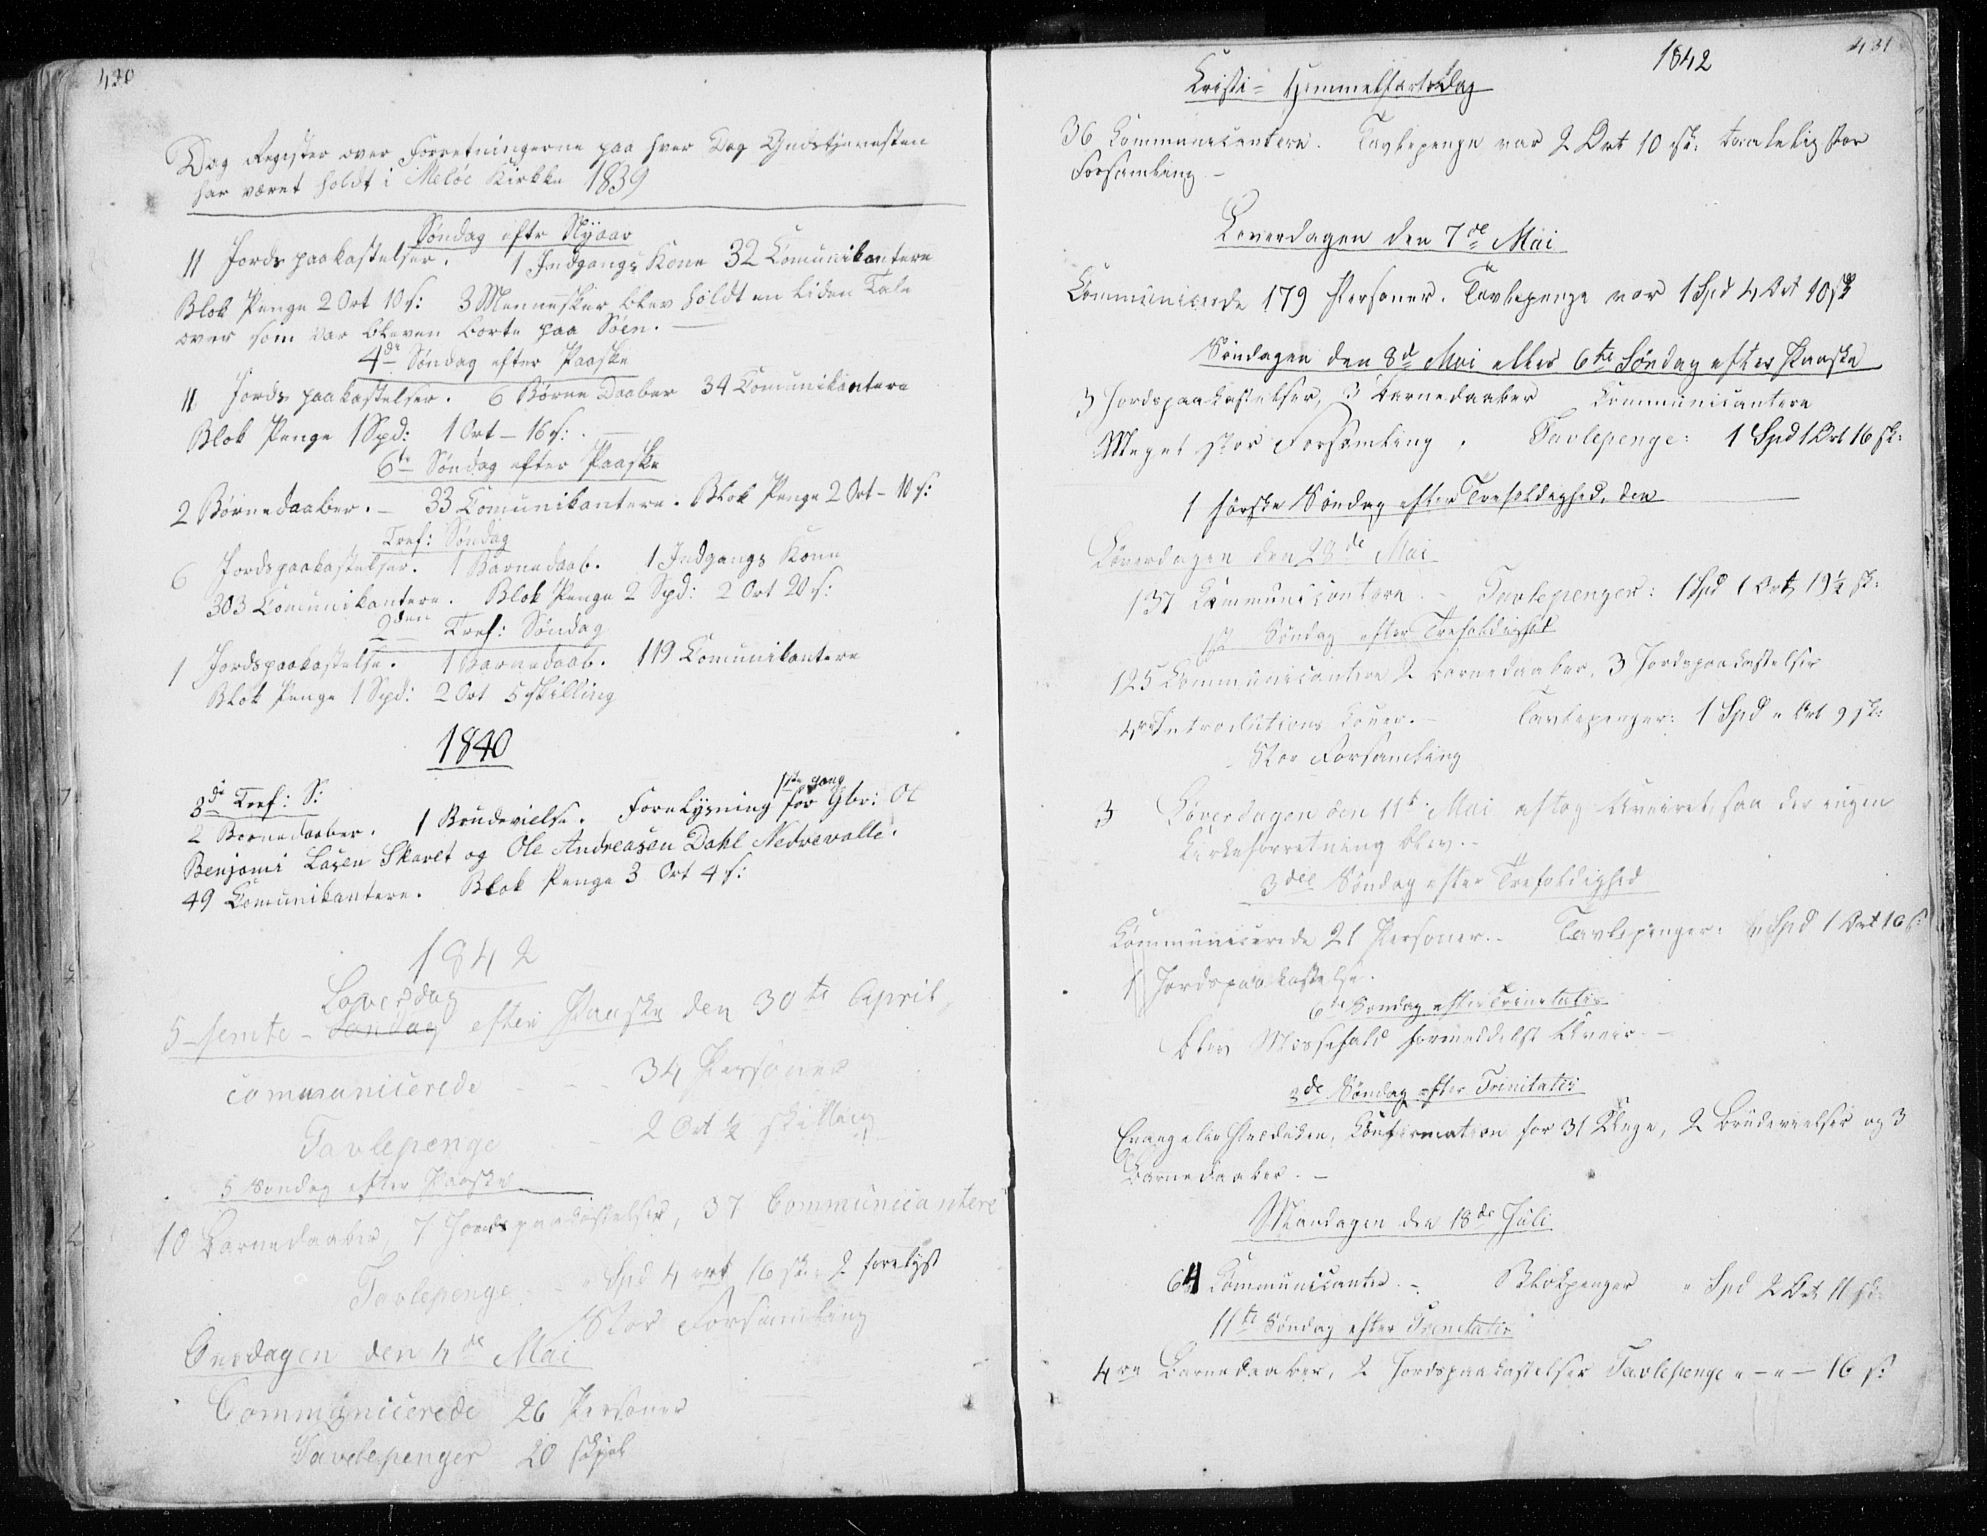 430
Dag Register over Forretningerne paa hver Dag Gudstjenesten
har været holdt i Meløe Kirkke 1839
Søndag eftr Nÿaar
11 Jords paakastelser. 1 Indgangs Kone 32 Comunikantere
Blok Penge 2 Ort 10 s: 3 Mennesker blev holdt en liden Tale
over som var bleven borte paa Søen. —
4de Søndag efter Paaske
11 Jords paakastelser. 6 Børne Daaber 34 Comunikantere
Blok Penge 1 Spd: 1 Ort – 16 s: . —
6te Søndag efter Paaske
2 Børnedaaber. – 33 Comunikantere. Blok Penge 2 Ort – 10 s:
Tref: Søndag
6 Jordspaakastelser. 1 Barnedaab. 1 Indgangs Kone
303 Comunikantere. Blok Penge 2 Spd: 2 Ort 20 s:
2den Tref: Søndag
1 Jordspaakastelse. 1 Barnedaab. 119 Comunikantere
Blok Penge 1 Spd: 2 Ort 5 skilling
1840
3de Tref: S:
1ste gang
2 Børnedaaber. 1 Brudevielse. Forelysning for Gbr: Ol
Benjomi Lasen Skaret og Ole Andreasen Dahl Nedrevalle.
49 Comunikantere. Blok Penge 3 Ort 4 s:
1842
Løverdag
5 – femte – Søndag efter Paaske den 30te April
communicerede - - - 34 Personer
Tavlepenge - 2 Ort ½ skilling
5 Søndag efter Paaske
10 Barnedaaber, 7 Jordspaakastelser, 37 Communicantere
Tavlepenge - " Spd 4 ort 16 sk. 2 forelyst
Stor Forsamling
Onsdagen den 4de Mai
Communicerede 26 Personer
Tavelepenger 20
431
1842
Cristi = Himmelfartsdag
36 Communicantere. Tavlepenge var 2 Ort 10 sk: temmelig stor
Forsamling –
Løverdagen den 7de Mai
Communicerede 179 Personer. Tavlepenge var 1 Spd 4 Ort 10 sk
Søndagen den 8d Mai eller 6te Søndag efter Paaske
3 Jordspaakastelser, 3 barnedaaber Communicantere
Meget stor Forsamling. Tavlepenge: 1 Spd 1 Ort 16 sk:
1 første Søndag efter Trefoldighed, den
Løverdagen den 28de Mai
137 Communicantere. – Tavlepenger: 1 Spd 1 Ort 19½ sk:
1st Søndag efter Trefoldighed
125 Communicantere 2 barnedaaber, 3 Jordspaakastelser
4re Introductions Koner. – Tavlepenger: 1 Spd " Ort 9 sk:
Stor Forsamling
3 Løverdagen den 11t Mai aftog Uveiret, saa der ingen
Kirkeforretning blev. –
3die Søndag efter Trefoldighed
Communicerede 21 Personer. – Tavlepenger: " Spd 1 Ort 16 s:
1 Jordspaakastelse.
6te Søndag efter Trinitatis
blev Messefald formedelst Uveir. –
8de Søndag efter Trinitatis
Confirmation for 31 Unge, 2 Brudevielser og 3
Barnedaaber. –
Mandagen den 18de Juli
64 Communicanter. – Blokpenger " Spd 2 Ort 11 sk:
11te Søndag efter Trinitatis
4re Barnedaaber, 2 Jordspaakastelser Tavlepenge " – " – 16 s: